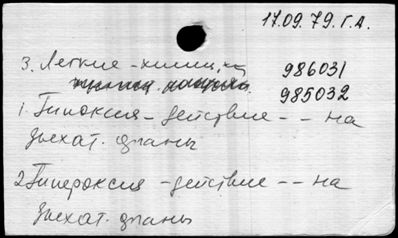 17.09.79. Г.А.
3. Легкие - химия, 986031
985032
1. Гипоксия - действие - - на
дыхат. органы
2. Гипероксия - действие - - на
дыхат. органы